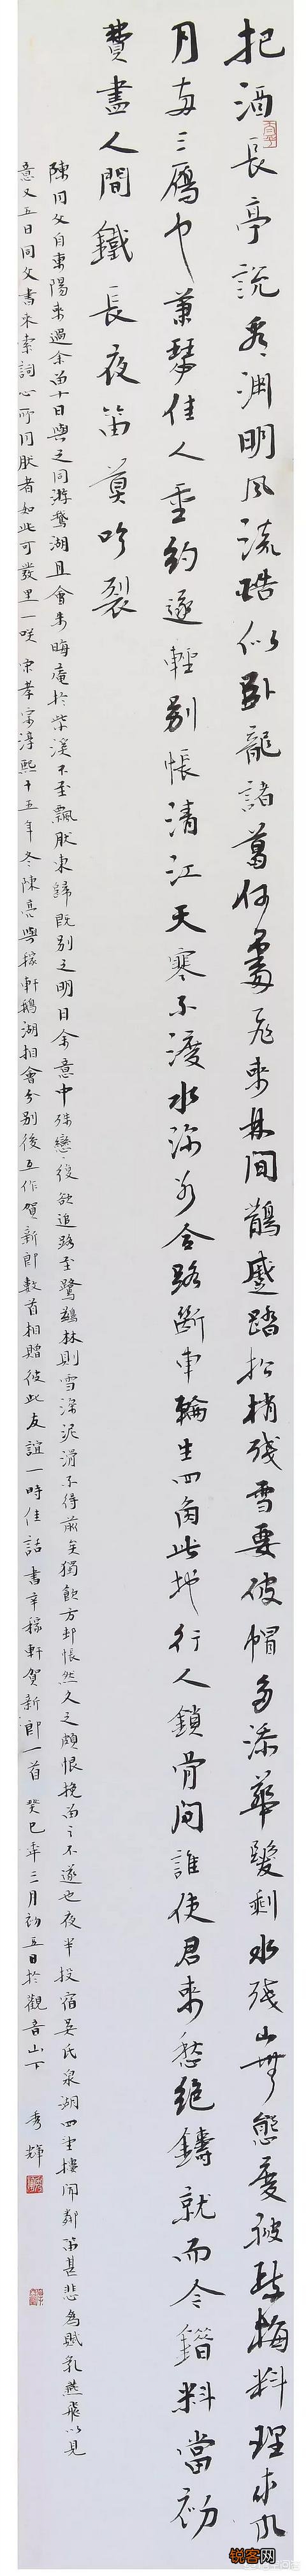 把酒長亭說看淵明風流酷似臥龍諸葛何處飛來林間鵲蹙踏松梢殘雪要破帽多添華髮剩水殘山無態度被疎梅料理成風
月兩三雁也蕭瑟佳人重約還輕別悵清江天寒不渡水深冰合路斷車輪生四角此地行人銷骨問誰使君來愁絕鑄就而今錯料當初
費盡人間鐵長夜笛莫吹裂
陳同父自東陽來過余留十日與之同游鵝湖且會朱晦庵於紫溪不至飄然東歸既別之明日余意中殊戀戀復欲追路至鷺鷀林則雪深泥滑不得前矣獨飲方村悵然久之頗恨挽留之不遂也夜半投宿吳氏泉湖四望樓聞鄰笛甚悲為賦乳燕飛以見
意又五日同父書來索詞心所同然者如此可發千里一笑 宋孝宗淳熙十五年冬陳亮與稼軒鵝湖相會分別後互作賀新郎數首相贈彼此友誼一時佳話 書辛稼軒賀新郎一首 癸巳年三月初五日於觀音山下 秀輝
锐客网